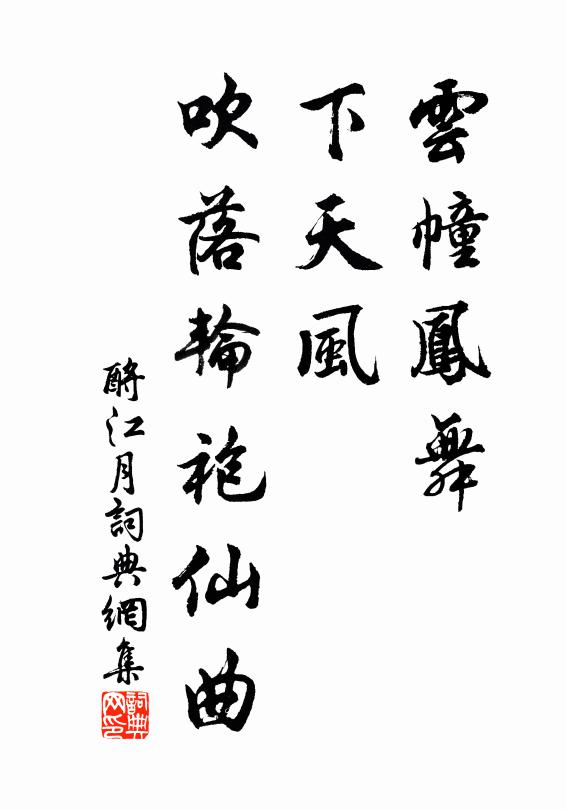 雲幢鳳舞
下天風
吹落輪袍仙曲
酹江月詞典網集
詞典網印